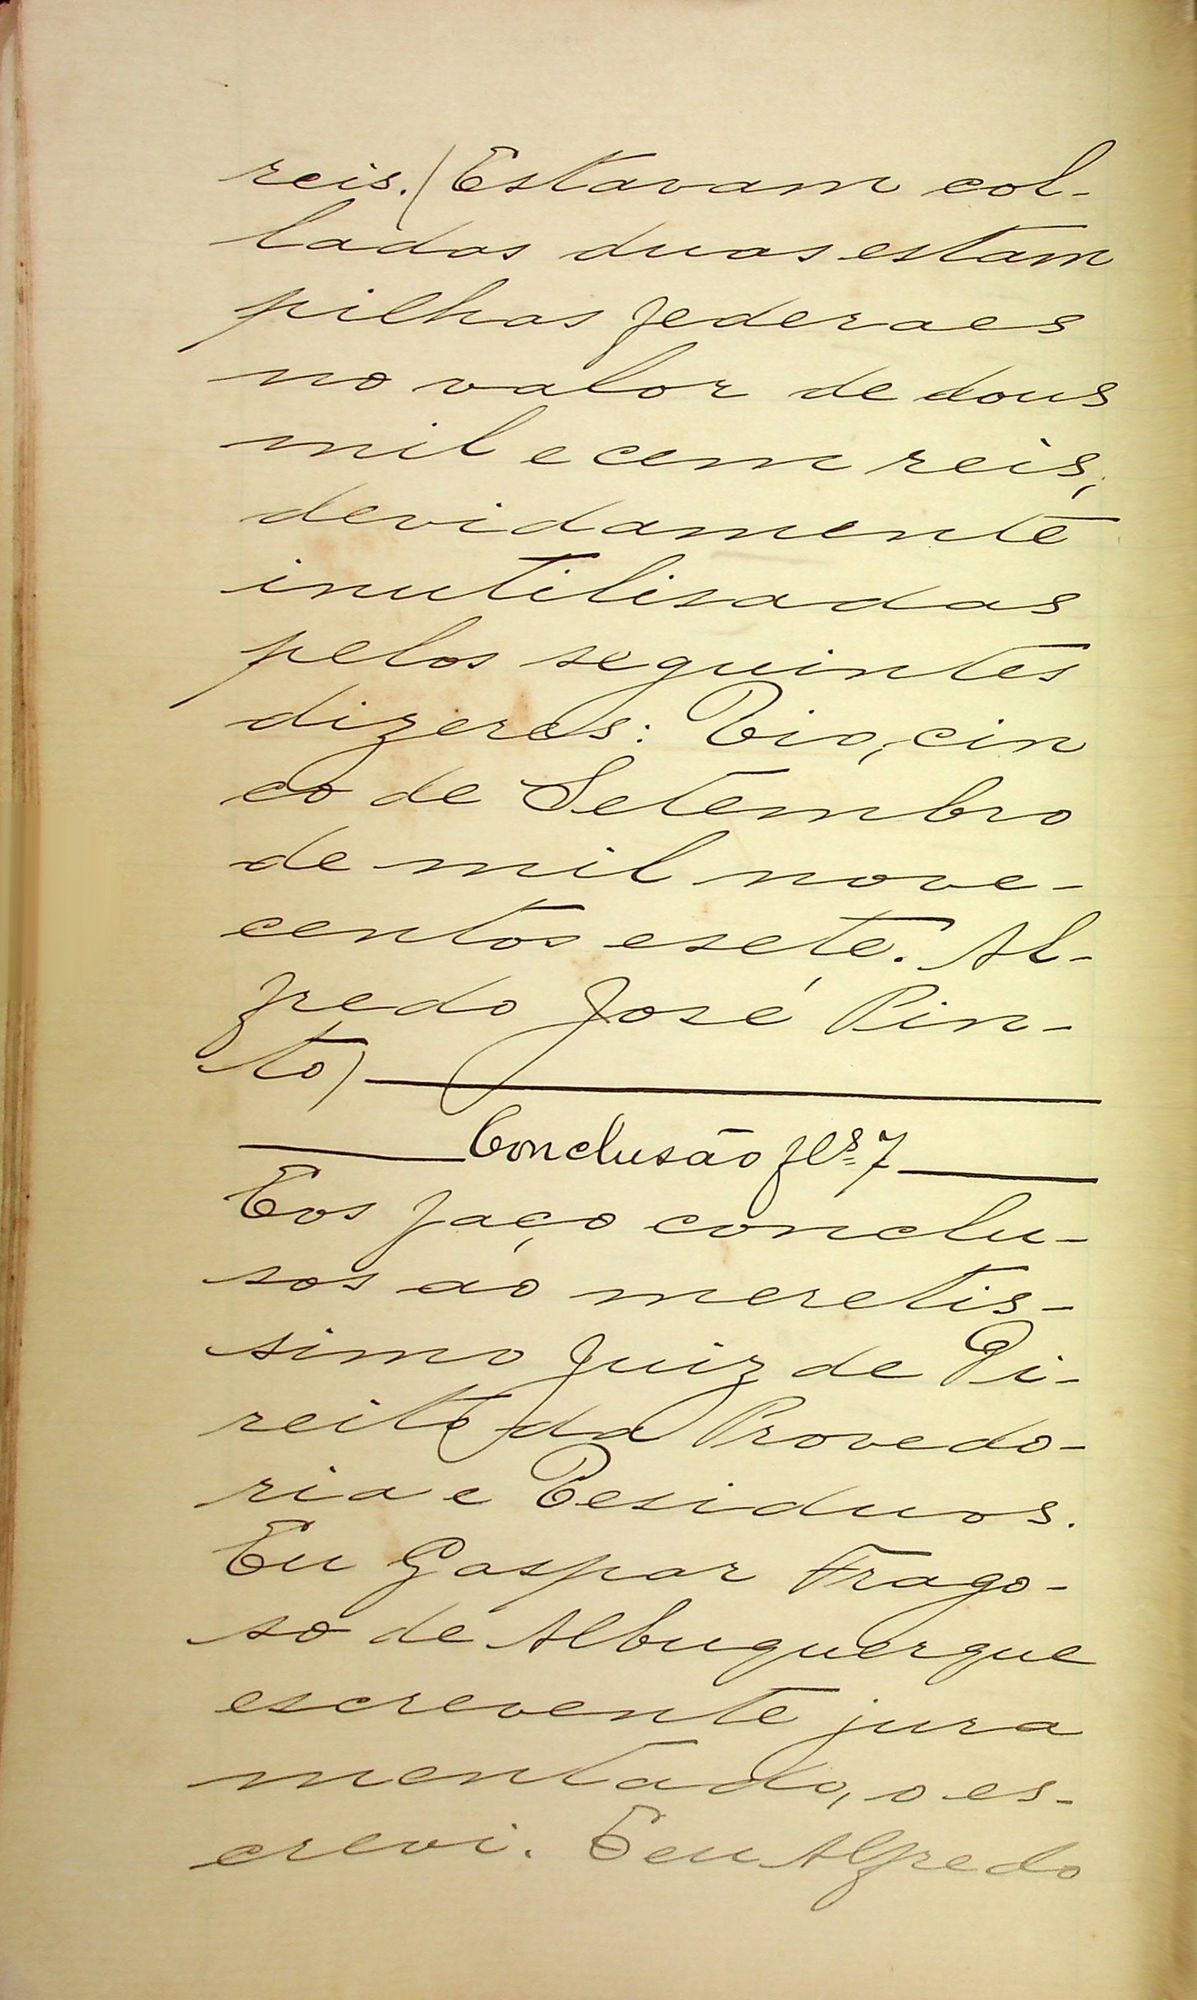 reis. (Estavam col-
ladas duas estam
pilhas federaes
no valor de dous
mil e cem reis,
devidamente
inutilisadas
pelos seguintes
dizeres: Rio, cin
co de Setembro
de mil nove-
centos e sete. Al-
fredo José Pin-
to)
Conclusão fls. 7
E os faço conclu-
sos ao meretis-
simo Juiz de Di-
reito da Provedo-
ria e Residuos.
Eu Gaspar Frago-
so de Albuquerque
escrevente jura
mentado, o es-
crevi. E eu Alfredo